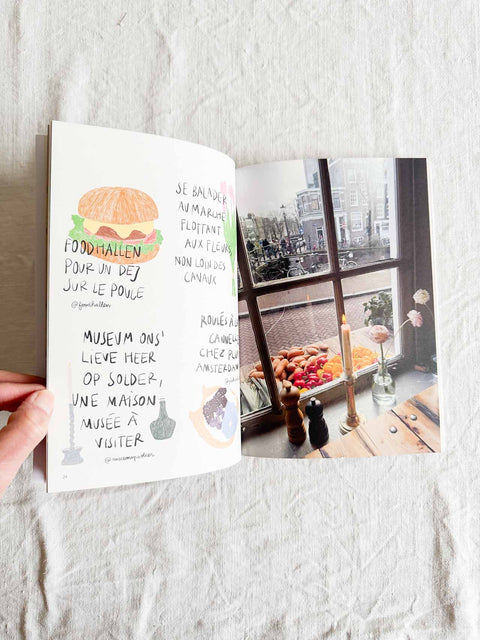 FOODHALLEN
POUR UN DEJ
SUR LE POUCE
@foodhallen
SE BALADER
AU MARCHÉ
FLOTTANT
AUX FLEURS,
NON LOIN DES
CANAUX
MUSEUM ONS'
LIEVE HEER
OP SOLDER,
UNE MAISON
MUSÉE À
VISITER
ROULÉS À
CANNELL
CHEZ
AMSTERDAM
24